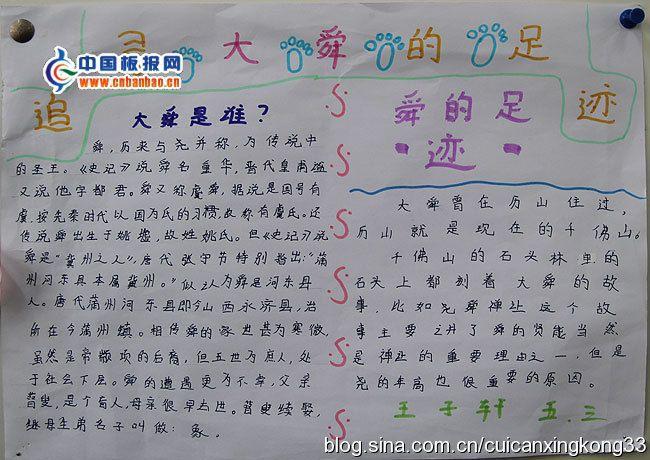 寻 大舜的足
追 迹
中国板报网
www.cnbanbao.cn
大舜是谁？
舜，历来与尧并称，为传说中
的圣王。《史记》说舜名重华，晋代皇甫谧
又说他字都君。舜又称虞舜，据说是国号有
虞，按先秦时代以国为氏的习惯，故称有虞氏。还
传说舜出生于姚墟，故姓姚氏。但《史记》说
舜是"冀州之人"，唐代张守节特别指出："蒲
州河东县本属冀州。"似以为舜是河东县
人。唐代蒲州河东县即今山西永济县，治
所在今蒲州镇。相传舜的家世甚为寒微，
虽然是常颛顼的后裔，但五世为庶人，处
于社会下层。舜的遭遇更为不幸，父亲
瞽叟，是个盲人，母亲很早去世。瞽叟续娶，
继母生弟名子叫做：象。
舜的足
迹
大舜曾在历山住过，
历山就是现在的千佛山。
千佛山的石头林里的
石头上都刻着大舜的故
事，比如尧舜禅让这个故
事主要讲了舜的贤能当然
是禅让的重要理由之一，但是
尧的年高也很重要的原因。
王子轩 五.三
blog.sina.com.cn/cuicanxingkong33